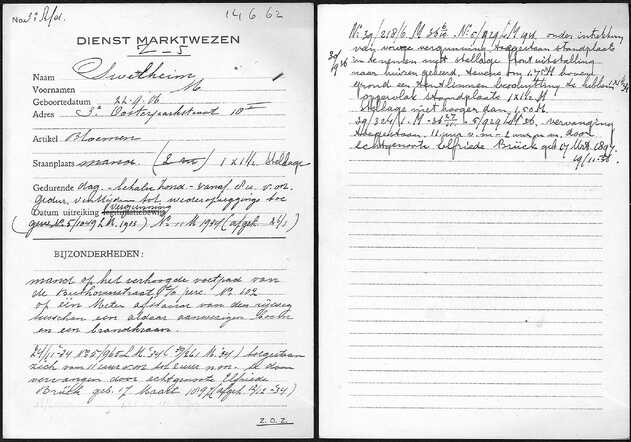 No. 3e Afd.
14662
DIENST MARKTWEZEN
Z-5
Naam Swetheim
Voornamen M
Geboortedatum 22-9-06
Adres 3e Oosterparkstraat 10 III
Artikel Bloemen
Staanplaats mand (2 m²) 1 x 1½ stellage
Gedurende dag - behalve Zond - vanaf 8 u. v.m.
gedur. winktijden tot wederopzeggings toe
Datum uitreiking legitimatiebewijs vergunning
(gew. No. 5/1049 L.M. 1933) No 11 M 1934 (afgeh 24/1)
BIJZONDERHEDEN:
mand op het verhoogde voetpad van
de Beethovenstraat t/o perc. No 102
op één Meter afstand van den rijweg
tusschen een aldaar aanwezigen boom
en een brandkraan.
24/11-34 No 5/965 L.M. 34 ( M. 34) toegestaan
zich van 11 uur v.m. tot 2 uur n.m. te doen
vervangen door echtgenoote Elfriede
Brück geb. 17 Maart 1897 (afgeh 13/12-34)
Z.O.Z.
No 29/218/6. M. 36 No. 5/929 L.M. 1936 onder intrekking
van vorige vergunning toegestaan standplaats
in te nemen met stellage front uitstalling
naar huizen gekeerd, tevens om 1.75 M boven
grond een tent linnen beschutting te hebben
oppervlak standplaats 1 x 1½ M.
Stellage niet hooger dan 1,50 M.
29/324/1. M - 36 - 5/929 L.M 36. vervanging
toegestaan 11 uur v.m - 2 uur n.m. door
echtgenoote Elfriede Brück geb 17 Mrt. 1897
19/11-36